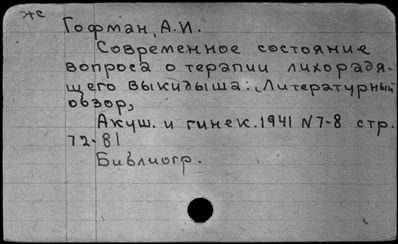 жс
Гофман, А.И.
Современное состояние
вопроса о терапии лихорадя-
щего выкидыша: Литературный
обзор,
Акуш. и гинек. 1941 N7-8 стр.
72-81
Библиогр.